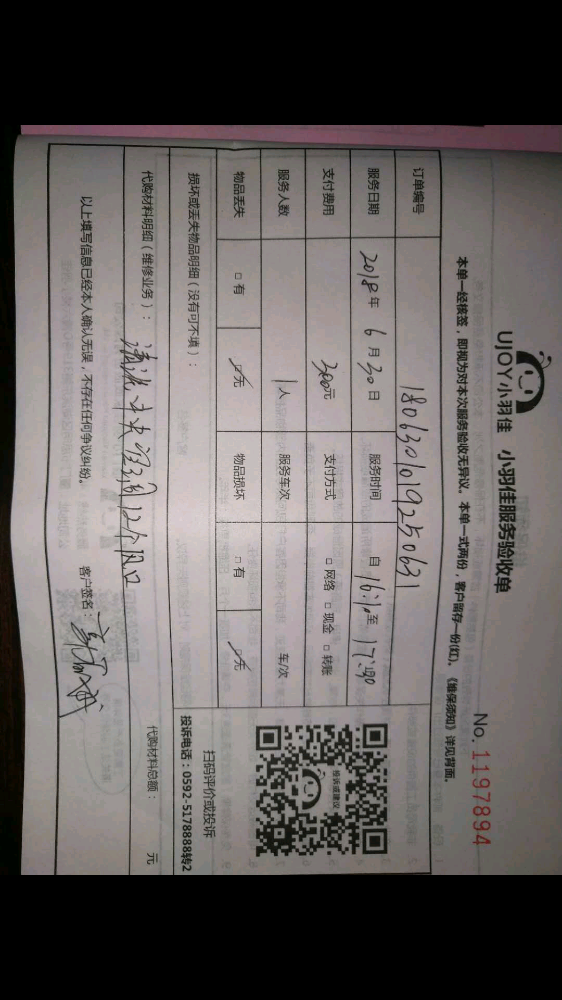 UJOY小羽佳 小羽佳服务验收单
No. 1197894
本单一经接签，即视为对本次服务验收无异议。本单一式两份，客户留存一份(红)。《维保须知》详见背面。
订单编号 180630101925063
服务日期 2018年 6月30日 服务时间 自 16:10 至 17:30
支付费用 300元 支付方式 □网络 □现金 □转账
服务人数 1人 服务车次 车/次
物品丢失 □有 ☑无 物品损坏 □有 ☑无
投诉或建议
扫码评价或投诉
投诉电话：0592-5178888转2
损坏或丢失物品明细（没有可不填）：
代购材料明细（维修业务）： 清洗中央空调12个风口 代购材料总额： 元
以上填写信息已经本人确认无误，不存在任何争议纠纷。 客户签名：